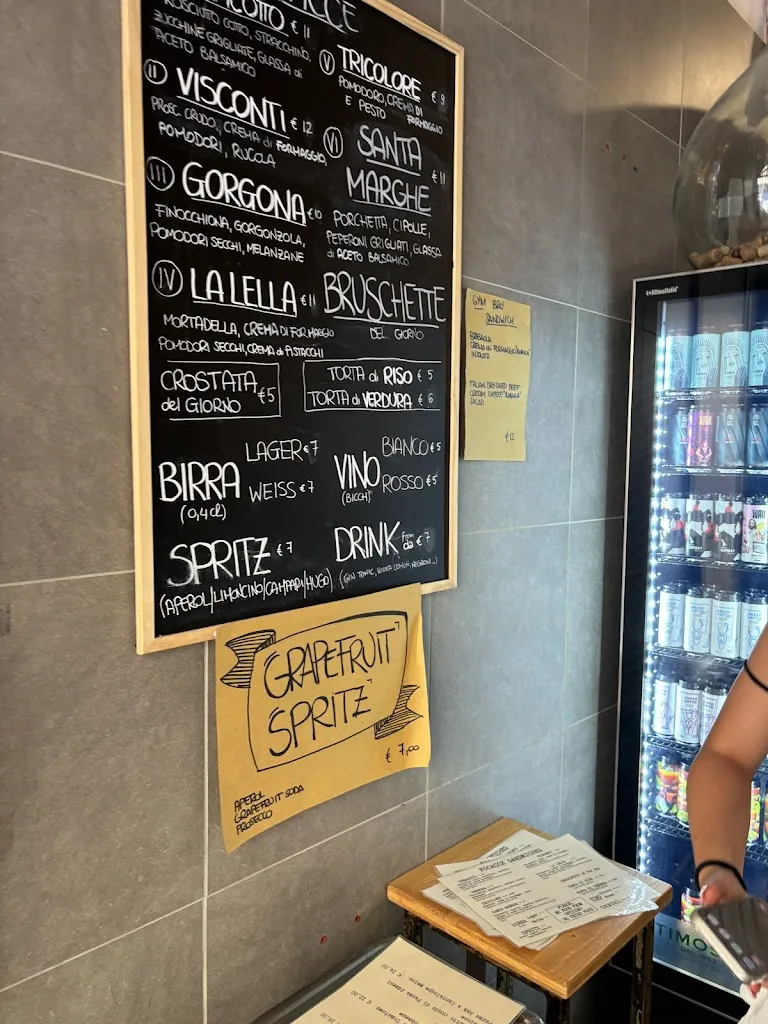 COTTO € 11
PROSCIUTTO COTTO, STRACCHINO,
ZUCCHINE GRIGLIATE, GLASSA di
ACETO BALSAMICO
II VISCONTI € 12
PROSC. CRUDO, CREMA di FORMAGGIO,
POMODORI, RUCOLA
III GORGONA €10
FINOCCHIONA, GORGONZOLA,
POMODORI SECCHI, MELANZANE
IV LA LELLA €11
MORTADELLA, CREMA DI FORMAGGIO
POMODORI SECCHI, CREMA di PISTACCHI
V TRICOLORE € 9
POMODORO, CREMA DI
FORMAGGIO
E PESTO
VI SANTA
MARGHE €11
PORCHETTA, CIPOLLE,
PEPERONI GRIGLIATI, GLASSA
di ACETO BALSAMICO
BRUSCHETTE
DEL GIORNO
CROSTATA
del GIORNO €5
TORTA di RISO € 5
TORTA di VERDURA € 6
BIRRA
(0,4cl)
LAGER €7
WEISS €7
VINO
(BICCH)
BIANCO €5
ROSSO €5
SPRITZ €7
(APEROL/LIMONCINO/CAMPARI/HUGO)
DRINK from
da € 7
(GIN TONIC, VODKA LEMON, NEGRONI...)
GYM BRO
SANDWICH
BRESAOLA
INSALATA
ITALIAN DRY-CURED BEEF
CREAM CHEESE
SALAD
€12
"GRAPEFRUIT"
SPRITZ"
€ 7,00
APEROL
GRAPEFRUIT SODA
PROSECCO
KlimaItalia
FOCACCE SANDWICHES